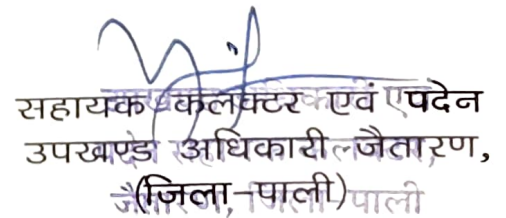 सहायक कलक्टर एवं पदेन
उपखण्ड अधिकारी जैतारण,
(जिला-पाली)